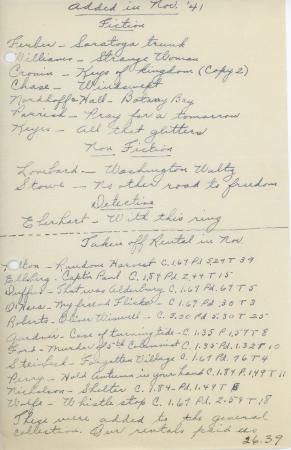 Added in Nov. '41
Fiction
Ferber - Saratoga trunk
Williams - Strange Woman
Cronin - Keys of Kingdom (Copy 2)
Chase - Windswept
Nordhoff & Hall - Botany Bay
Parrish - Pray for a tomorrow
Keyes - All that glitters
Non Fiction
Lombard - Washington Waltz
Stowe - No other road to freedom
Detective
Eberhart - With this ring
Taken off Rental in Nov.
Hilton - Random Harvest C. 1.67 Pd 5.24 T 39
Ellsberg - Captn Paul C. 1.84 Pd 2.44 T 15
Duffield - That was Aldenburg C. 1.67 Pd .67 T 5
O'Hara - My friend Flicka - C 1.67 Pd .30 T 3
Roberts - Oliver Wiswell - C 2.00 Pd 5.30 T 25
Gardner - Case of turning tide - C 1.35 P. 1.57 T 8
Ford - Murder of 5th Columnist C 1.35 Pd. 1.32 T 10
Steinbeck - Forgotten Village C 1.67 Pd .76 T 4
Perry - Hold Autumn in your hand C 1.84 P 1.49 T 11
Nicholson - Shelter C 1.84 Pd. 1.49 T 8
Wolfe - Whistle stop C 1.67 Pd. 2.59 T 18
These were added to the general
collection. Our rentals paid us
26.39